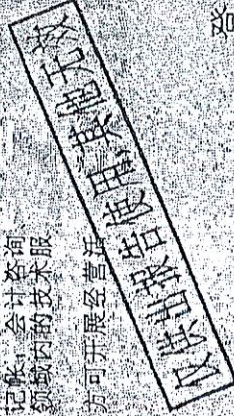 记帐;会计咨询
领域内的技术服
方可开展经营活
仅供出报告使用,其他无效
登